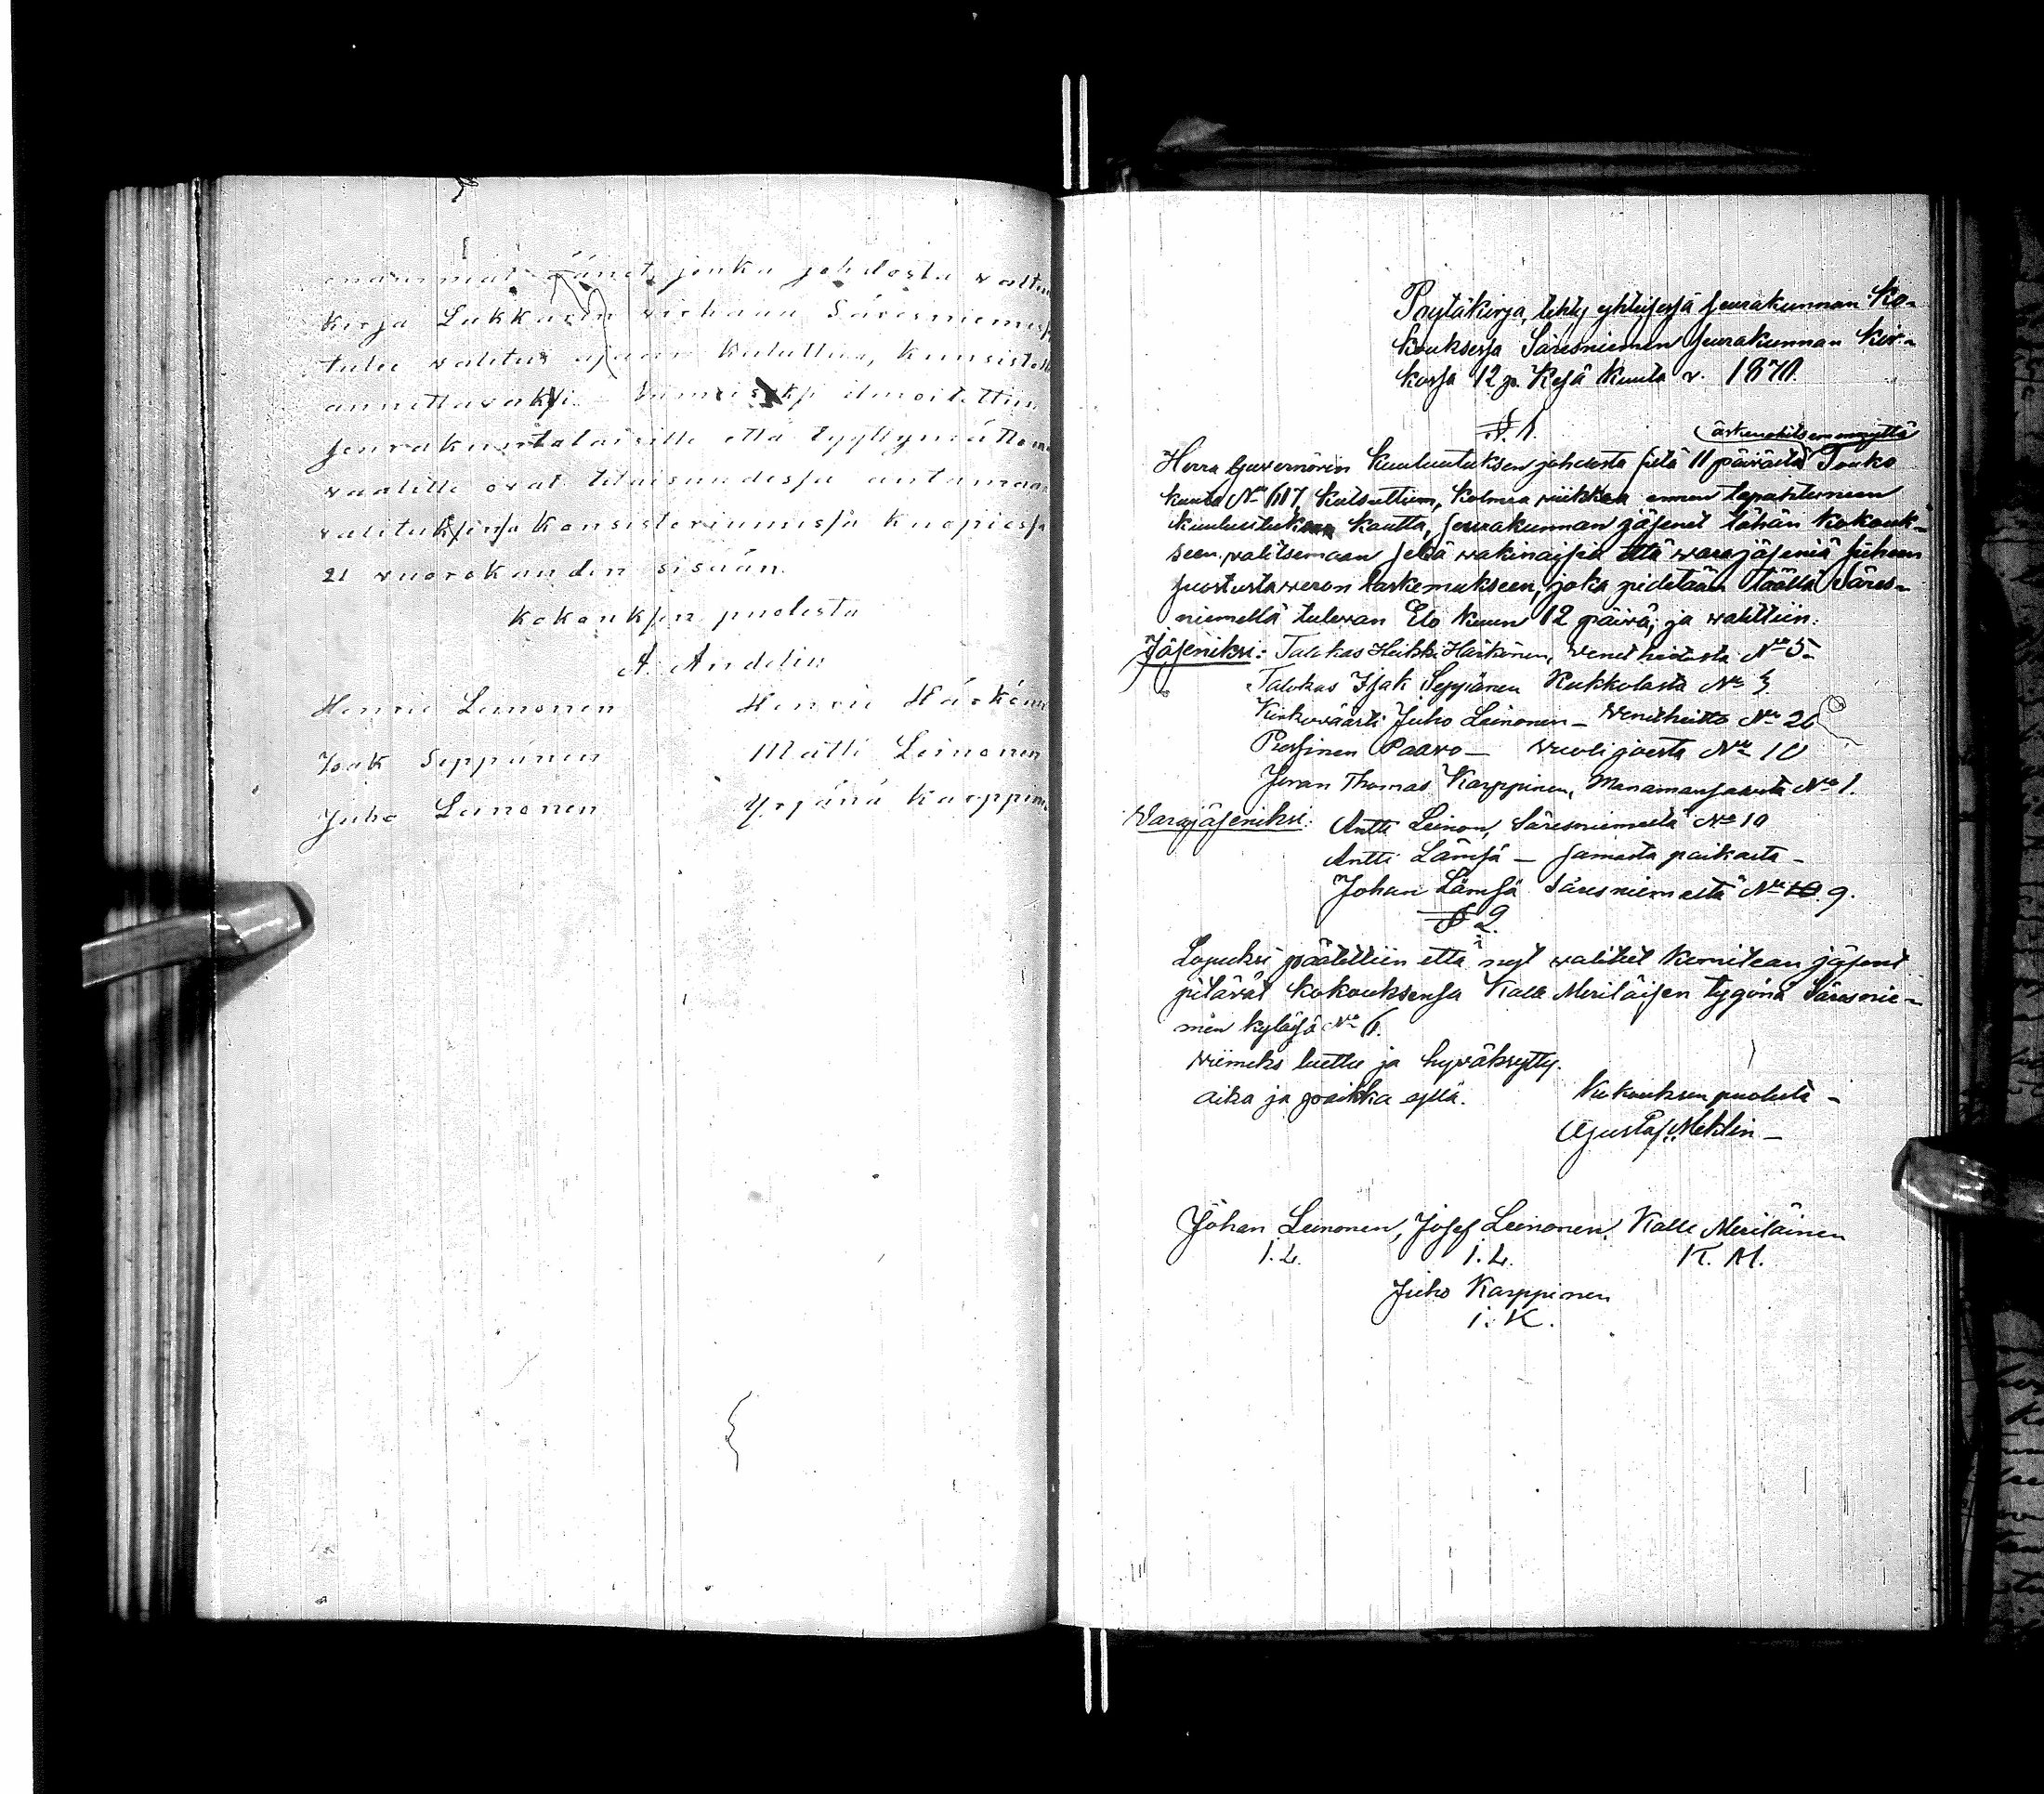 enämmät äänet, jonka johdosta valta
kirja Lukkarin virkaan Säresniemessä
tulee valitus ajaan kuluttua, kunsistor
annettavaksi. Viimeiseksi ilmoitettiin
seurakuntalaisille että tyytymättöm
vaalille ovat tilaisuudessa antamaan
valituksinsa konsistoriumissa Kuopiossa
21 vuorokauden sisään.
Kokouksen puolesta
A. Andelin
Henric Leinonen Henric Härkönen
Isak Seppänen Matti Leinonen
Juho Leinonen Yrjänä Karppinen
Pöytäkirja, tehty yhteisessä seurakunnan Ko-
kouksessa Säresniemen seurakunnan Kir-
kossa 12 p. Kesä Kuuta v. 1870.
§. 1.
Herra Guvernörin kuulutuksen johdosta sitä 11 päivästä Touko
kuuta No 617, kutsuttiin, kolmea viikkoa ennen tapahtuneen
kuulutuksen kautta, seurakunnan jäsenet tähän kokouk-
seen valitsemaan sekä vakinaisia että varajäseniä siihen
suostuntaveron laskemukseen, joka pidetään täällä Säres-
niemellä tulevan Elo Kuun 12 päivä; ja valittiin:
Jäseniksi: Talokas Heikki Härkönen, Venetheitosta No 5-
Talokas Isak Seppänen Kukkolasta No 3.
Kirkoväärti Juho Leinonen - Venetheitto No 20
Paavo - Vuolijoesta No 10
Thomas Karppinen, Manamansaarta No 1.
Varajäseniksi: Antti Leinon, Säresniemeltä No 10
Antti Lämsä - samasta paikasta -
Johan Lämsä Säresniemeltä No 10. 9.
§ 2.
Lopuksi päätettiin että nyt valitut komitean jäsenet
pitävät kokouksensa Kalle Meriläisen tygönä Säresnie-
men kylässä No 6.
Viimeks luettu ja hyväksytty.
aika ja paikka yllä. Kokouksen puolesta -
Gustaf Meklin -
Johan Leinonen, Josef Leinonen. Kalle Meriläinen
I. L. I. L. K. M.
Juho Karppinen
I. K.